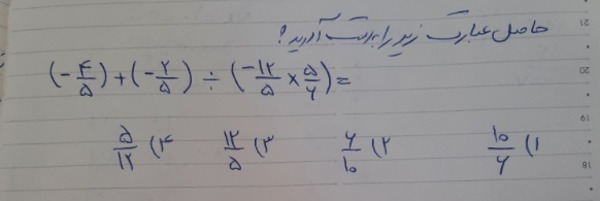 حاصل عبارت زیر را بدست آورید؟
(-۴/۵) + (-۲/۵) ÷ (-۱۲/۵ × ۵/۶) =
۱) ۱۰/۶ ۲) ۶/۱۰ ۳) ۱۲/۵ ۴) ۵/۱۲
21
20
19
18